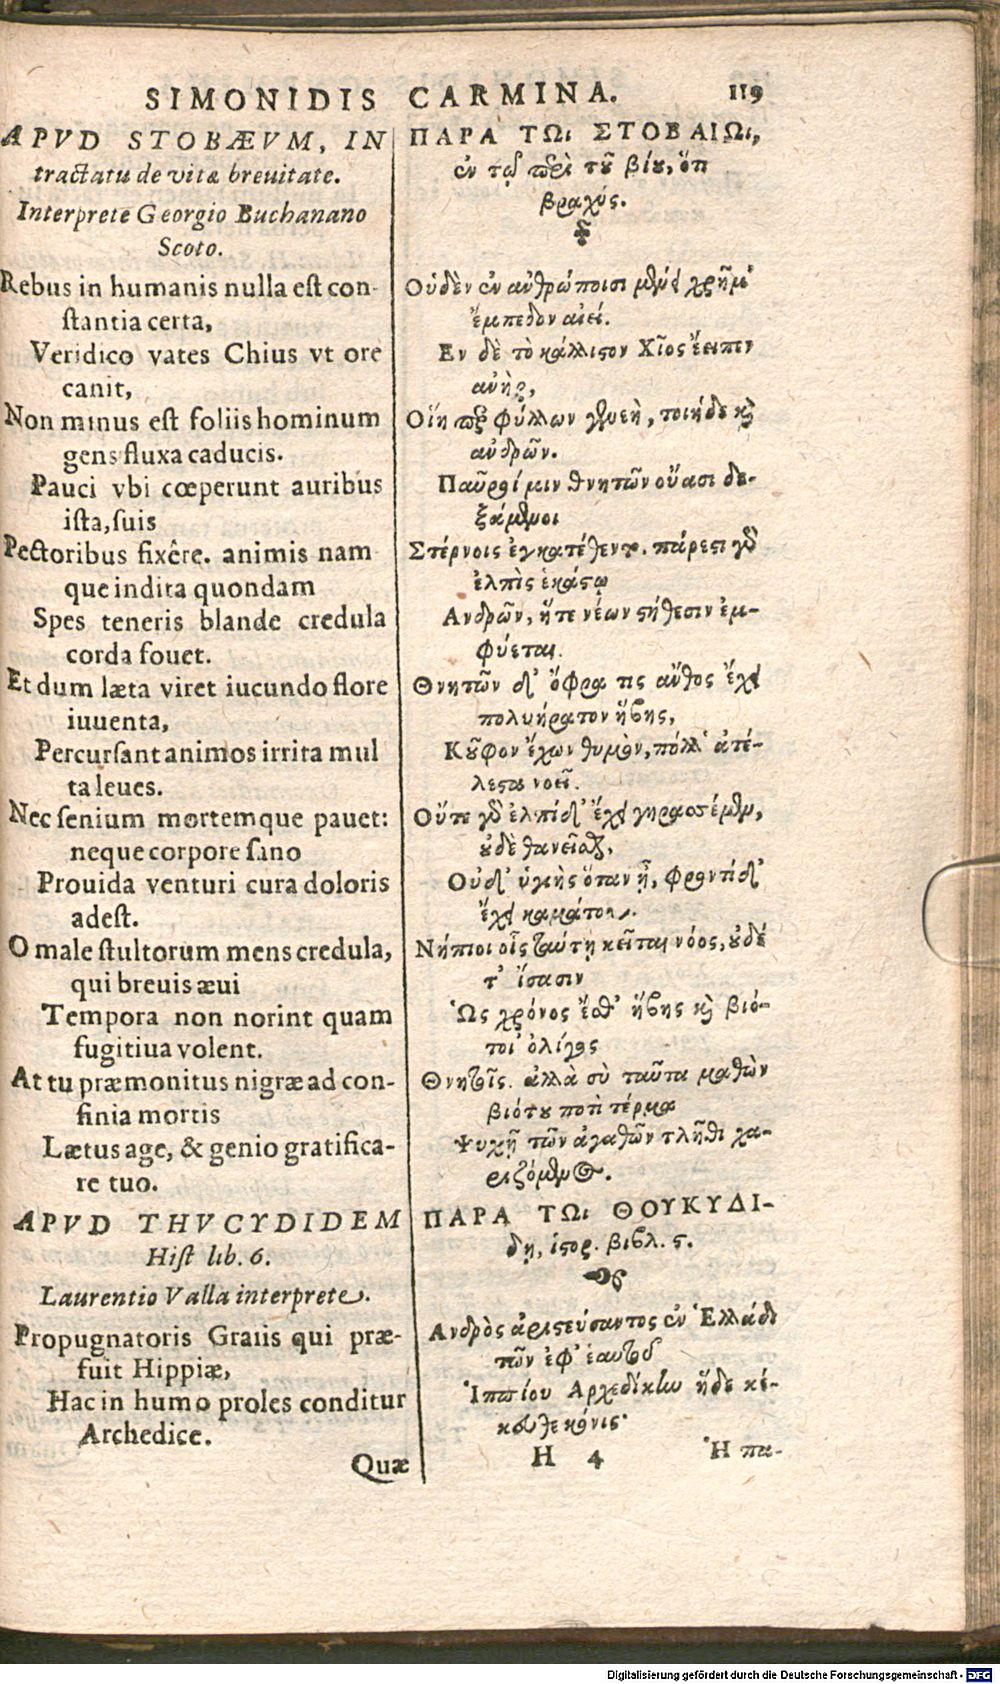 SIMONIDIS CARMINA. 119
APVD STOBÆVM, IN
tractatu de vitæ breuitate.
Interprete Georgio Buchanano
Scoto.
Rebus in humanis nulla est con-
stantia certa,
Veridico vates Chius vt ore
canit,
Non minus est foliis hominum
gens fluxa caducis.
Pauci vbi cœperunt auribus
ista, suis
Pectoribus fixêre. animis nam
que indita quondam
Spes teneris blande credula
corda fouet.
Et dum læta viret iucundo flore
iuuenta,
Percursant animos irrita mul
ta leues.
Nec senium mortemque pauet:
neque corpore sano
Prouida venturi cura doloris
adest.
O male stultorum mens credula,
qui breuis æui
Tempora non norint quam
fugitiua volent.
At tu præmonitus nigræ ad con-
finia mortis
Lætus age, & genio gratifica-
re tuo.
APVD THVCYDIDEM
Hist lib. 6.
Laurentio Valla interprete.
Propugnatoris Graiis qui præ-
fuit Hippiæ,
Hac in humo proles conditur
Archedice.
Quæ
ΠΑΡΑ ΤΩι ΣΤΟΒΑΙΩι,
ἐν τῷ περὶ τοῦ βίου, ὅτι
βραχύς.
Οὐδὲν ἐν ἀνθρώποισι μένει χρῆμ'
ἔμπεδον αἰεί.
Εν δὲ τὸ κάλλιστον Χῖος ἔειπεν
ἀνὴρ,
Οἵη περ φύλλων γενεὴ, τοιήδε καὶ
ἀνδρῶν.
Παῦροί μιν θνητῶν οὔασι δε-
ξάμενοι
Στέρνοις ἐγκατέθεντο. πάρεστι γὰρ
ἐλπὶς ἑκάστῳ
Ανδρῶν, ἥτε νέων στήθεσιν ἐμ-
φύεται.
Θνητῶν δ' ὄφρα τις ἄνθος ἔχει
πολυήρατον ἥβης,
Κοῦφον ἔχων θυμὸν, πόλλ' ἀτέ-
λεστα νοεῖ.
Οὔτε γὰρ ἐλπίδ' ἔχει γηρασέμεν,
οὐδὲ θανεῖσθαι,
Οὐδ' ὑγιὴς ὅταν ᾖ, φροντίδ'
ἔχει καμάτου.
Νήπιοι οἷς ταύτῃ κεῖται νόος, οὐδέ
τ' ἴσασιν
Ὡς χρόνος ἔσθ' ἥβης καὶ βιό-
τοι' ὀλίγος
Θνητοῖς. ἀλλὰ σὺ ταῦτα μαθὼν
βιότου ποτὶ τέρμα
Ψυχῇ τῶν ἀγαθῶν τλῆθι χα-
ριζόμενος.
ΠΑΡΑ ΤΩι ΘΟΥΚΥΔΙ-
δῃ, ἱστορ. βιβλ. ς.
Ανδρὸς ἀριστεύσαντος ἐν Ἑλλάδι
τῶν ἐφ' ἑαυτοῦ
Ἱππίου Αρχεδίκην ἥδε κέ-
κευθε κόνις·
H 4 Ἡ πα-
Digitalisierung gefördert durch die Deutsche Forschungsgemeinschaft - DFG